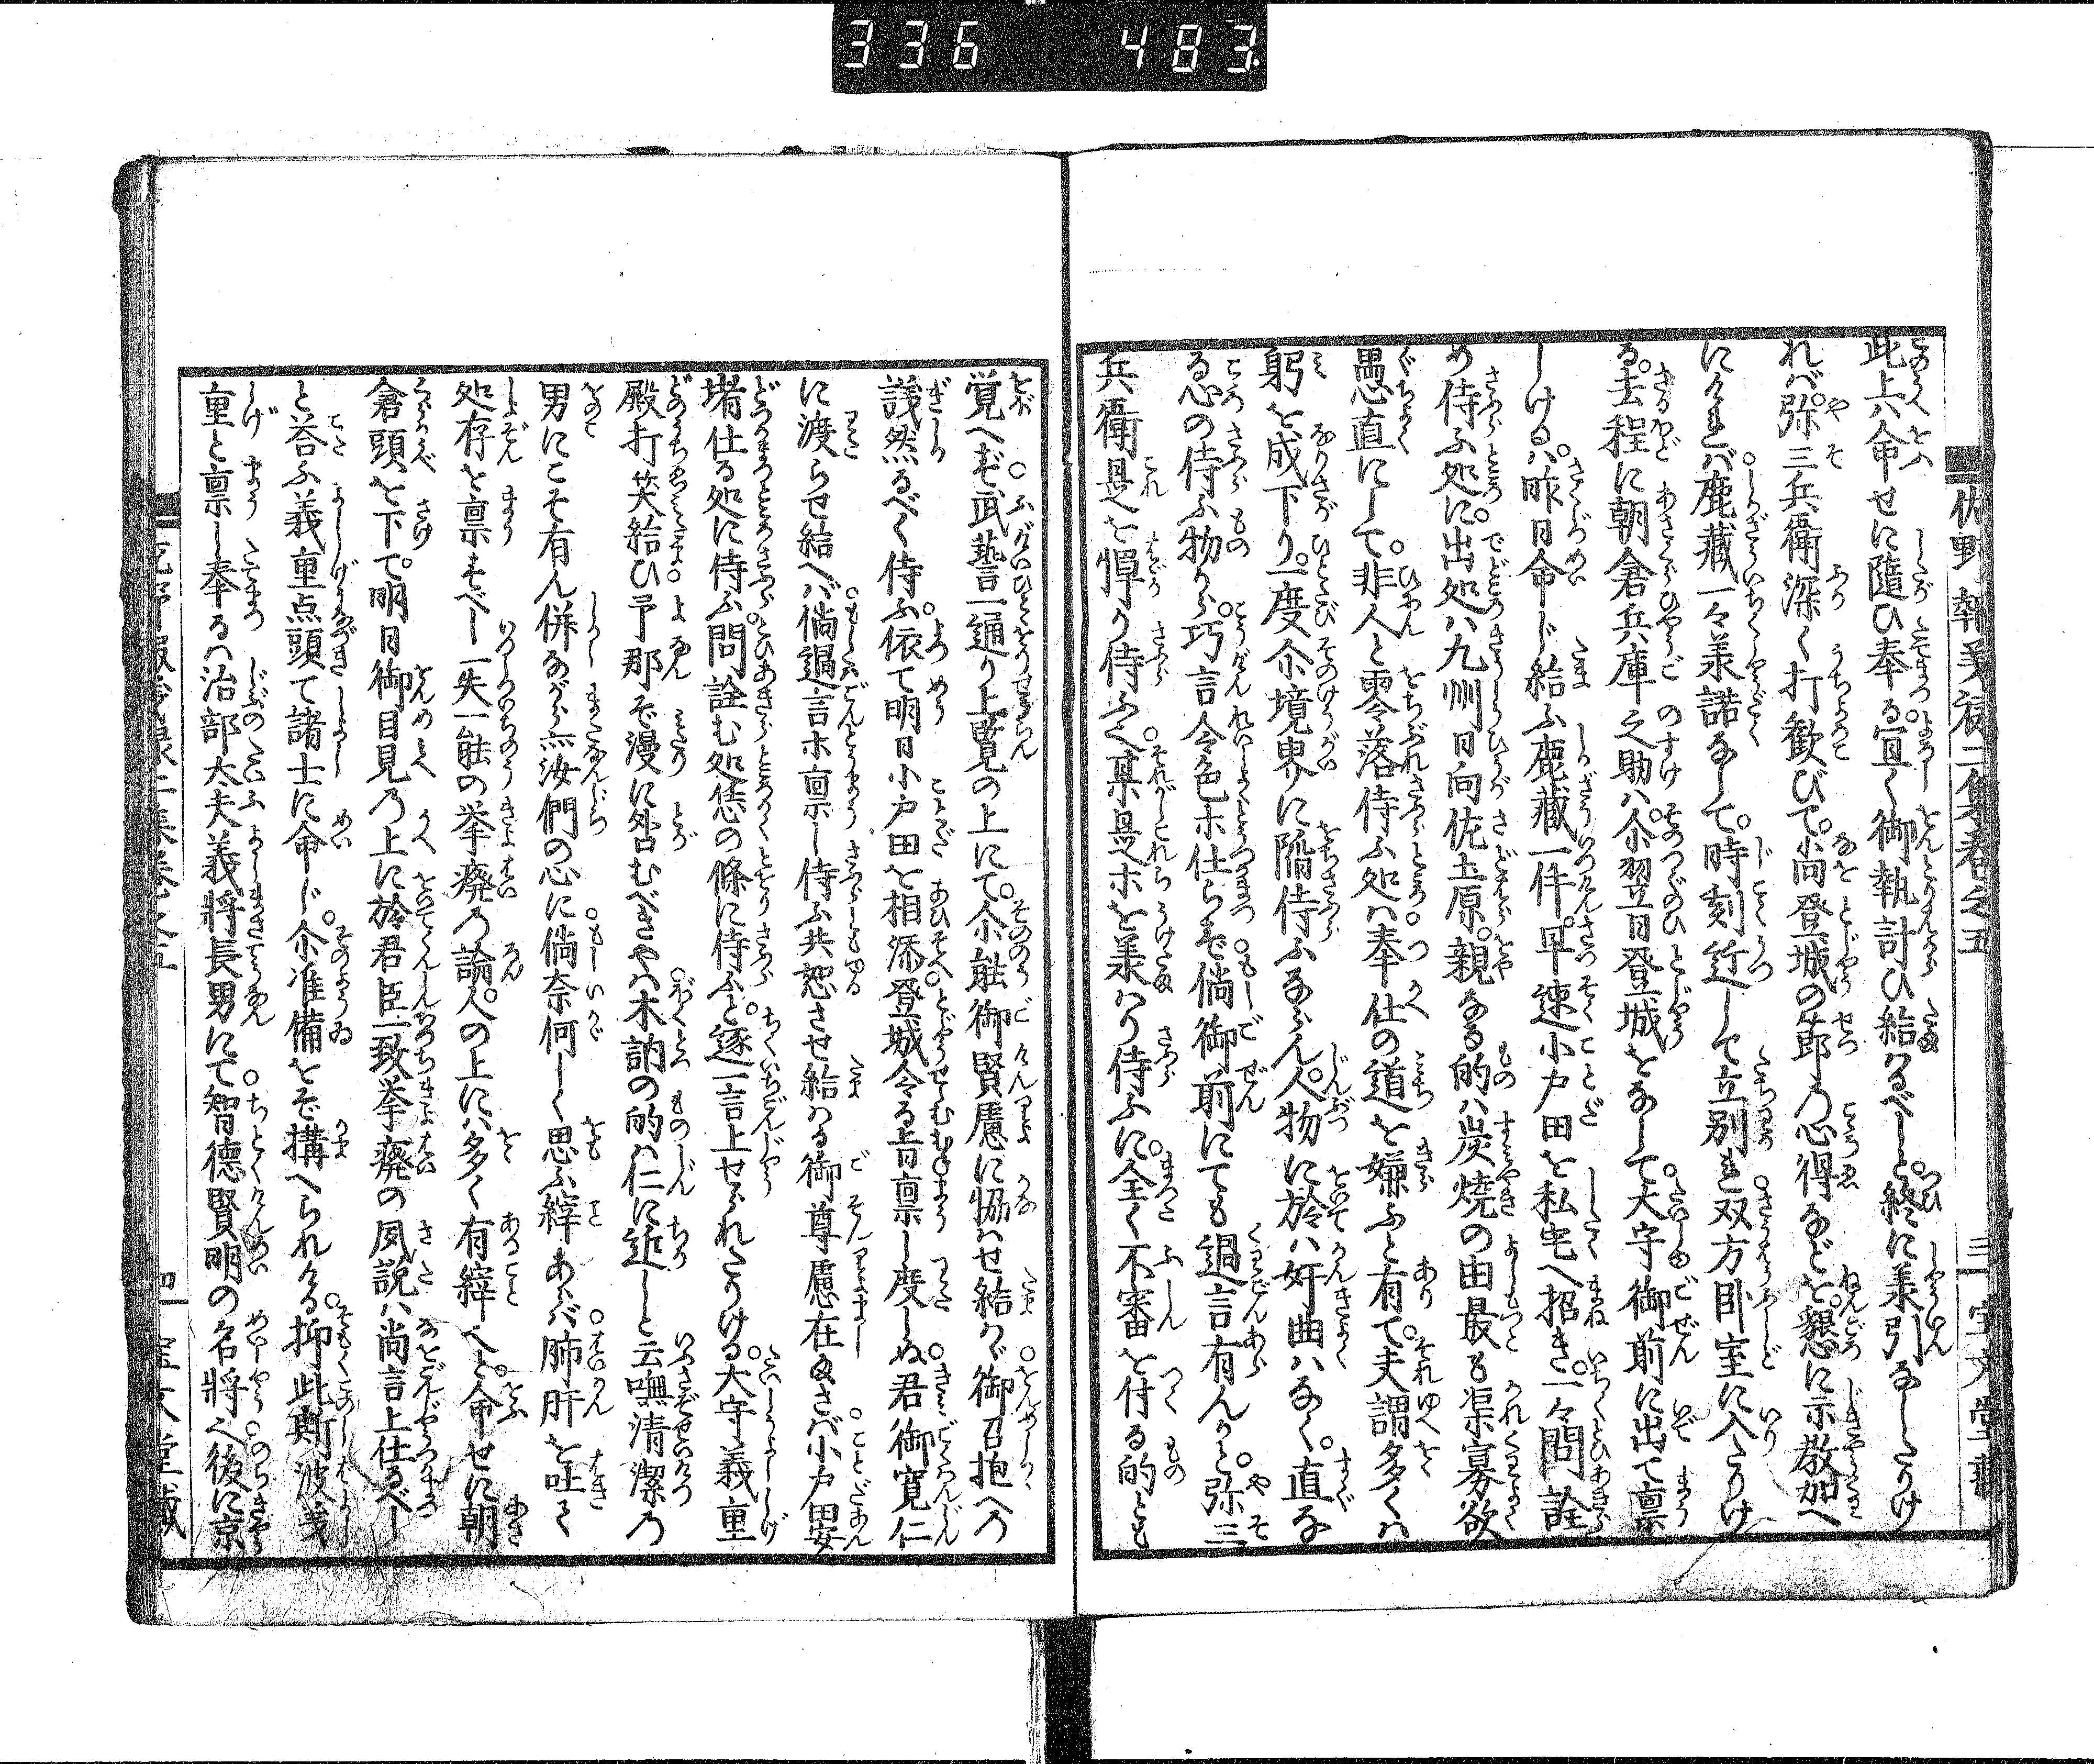 336 483
佐野報義録二集巻之五 三 宝文堂蔵
此上ハ命せに隨ひ奉る。宜く御執計ひ給るべしと。終に羕引なしたりけ
れバ。弥三兵衛深く打歓びて。尚登城の莭乃心得などを。懇に示教加へ
にけれバ。鹿藏一々羕諾なして。時刻近して立別れ双方臥室に入たりけ
る。去程に朝倉兵庫之助ハ。尒翌日登城をなして。大守御前に出て禀
しけるハ。昨日命じ給ふ鹿藏一件。早速小戸田を私宅へ招き。一々問詮
め侍ふ処に。出処ハ九州日向佐土原。親なる的ハ炭焼の由最も渠寡欲
愚直にして。非人と零落侍ふ処ハ。奉仕の道を嫌ふと有て。夫謂多くハ
躬を成下り。一度尒境界に陷侍ふならん。人物に於ハ奸曲ハなく。直な
る心の侍ふ物から。巧言令色ホ仕らず。倘御前にても過言有んかと。弥三
兵衛是を憚り侍ふて。某是ホを羕ハり侍ふに。全く不審を付る的とも
覚へず。武藝一通り上覧の上にて。尒能御賢慮に協ハせ給ハヾ。御召抱への
議然るべく侍ふ。依て明日小戸田を相添。登城令る旨禀し度しぬ。君御寛仁
に渡らせ給へバ。倘過言ホ禀し侍ふ共恕させ給ハる御尊慮在まさバ。小戸田安
堵仕る処に侍ふ。問詮む処恁の條に侍ふと。逐一言上せられたりける。大守義重
殿打笑給ひ。予那ぞ漫に咎むべきや。木訥の的ハ仁に近しと云。嘸清潔乃
男にこそ有ん。併ながら汝們の心に。倘奈何しく思ふ縡あらバ。肺肝を吐て
処存を禀すべし。一失一能の挙癈乃論。人の上にハ多く有縡へと。命せに朝
倉頭を下て。明日御目見乃上に於。君臣一致挙癈の夙説ハ尚言上仕るべし
と荅ふ。義重点頭て諸士に命じ。尒准備をぞ搆へられける。抑此斯波義
重と禀し奉るハ。治部大夫義將長男にて。智德賢明の名將へ。後に京